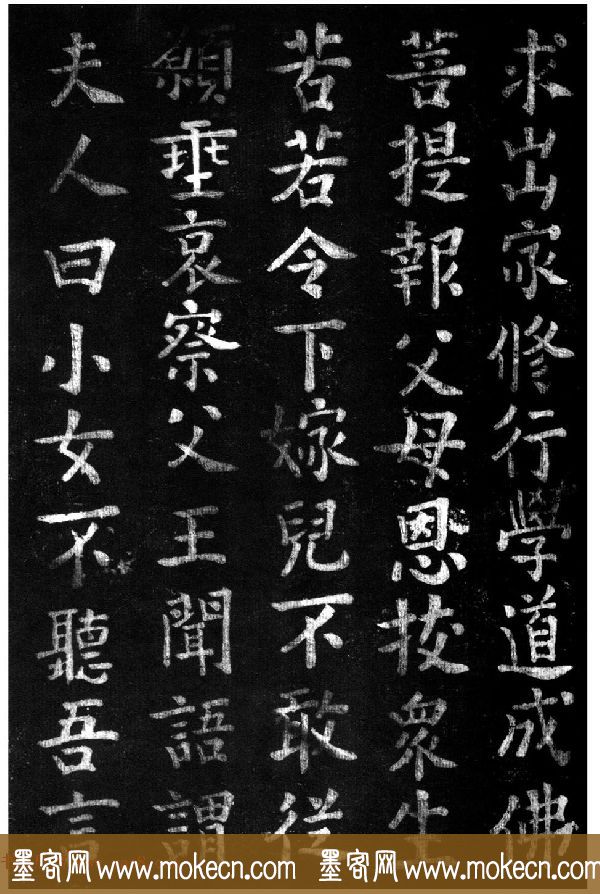 求出家修行學道成佛
菩提報父母恩拔衆生
苦若令下嫁兒不敢從
願垂哀察父王聞語謂
夫人曰小女不聽吾言
墨客网 www.mokecn.com 墨客网 www.mokecn.com